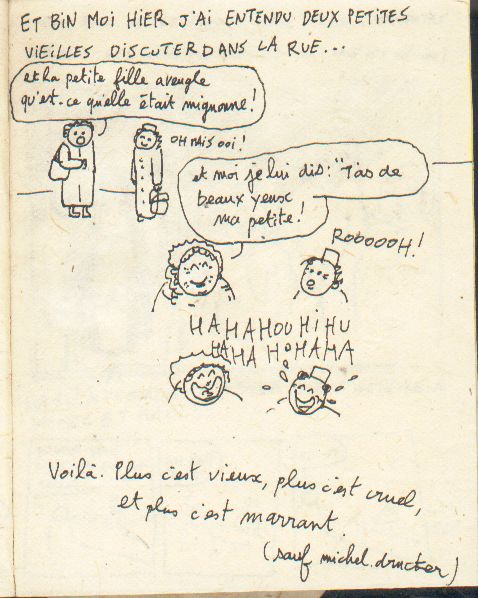 ET BIN MOI HIER J'AI ENTENDU DEUX PETITES
VIEILLES DISCUTER DANS LA RUE...
et la petite fille aveugle
qu'est-ce qu'elle était mignonne!
OH MAIS OOI!
et moi je lui dis: "T'as de
beaux yeux
ma petite!
ROOOOOH!
HAHAHOUHIHU
HAHA HOHAHA
Voilà. Plus c'est vieux, plus c'est cruel,
et plus c'est marrant.
(sauf michel drucker)